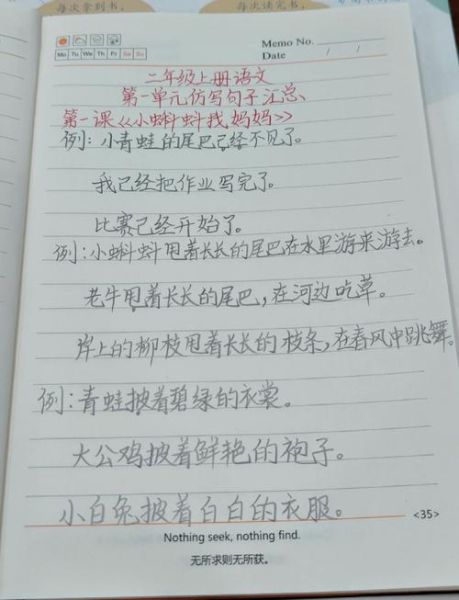 每次拿到书,
每次读完书,
Memo No.
Mo Tu We Th Fr Sa Su
Date / /
二年级上册语文
第一单元仿写句子汇总
第一课《小蝌蚪找妈妈》
例:小青蛙的尾巴已经不见了。
我已经把作业写完了。
比赛已经开始了。
例:小蝌蚪甩着长长的尾巴在水里游来游去。
老牛甩着长长的尾巴,在河边吃草。
岸上的柳枝甩着长长的枝条,在春风中跳舞。
例:青蛙披着碧绿的衣裳。
大公鸡披着鲜艳的袍子。
小白兔披着白白的衣服。
<35>
Nothing seek, nothing find.
无所求则无所获。